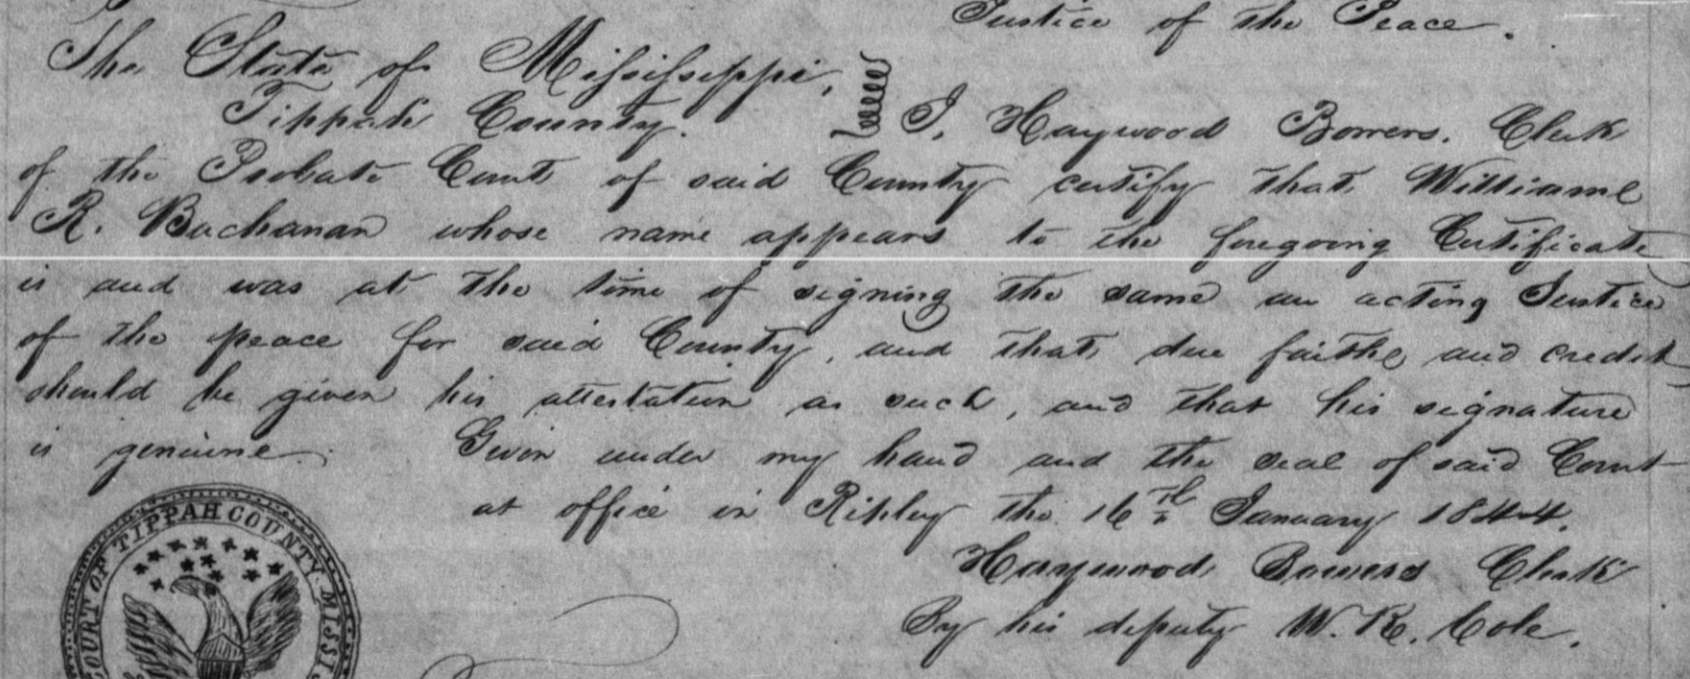 Justice of the Peace.
The State of Mississippi,
Tippah County. I, Haywood Bowers, Clerk
of the Probate Court of said County certify that William
R. Buchanan whose name appears to the foregoing Certificate
is and was at the time of signing the same an acting Justice
of the peace for said County, and that due faith and credit
should be given his attestation as such, and that his signature
is genuine. Given under my hand and the seal of said Court
at office in Ripley the 16th January 1844.
Haywood Bowers Clerk
By his deputy W. R. Cole.
COURT OF TIPPAH COUNTY MISSI